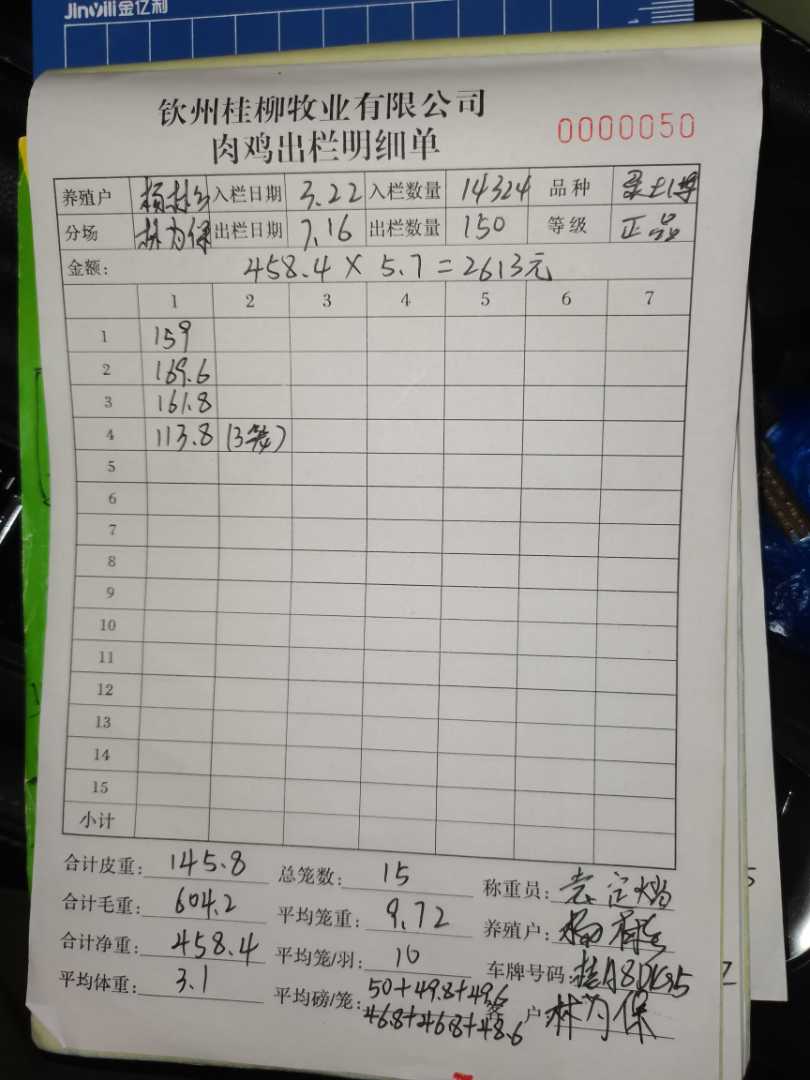 Jinyili金亿利
钦州桂柳牧业有限公司
肉鸡出栏明细单 0000050
养殖户 入栏日期 3.22 入栏数量 14324 品种
分场 林为保 出栏日期 7.16 出栏数量 150 等级 正品
金额: 458.4 × 5.7 = 2613元
1 2 3 4 5 6 7
1 159
2 169.6
3 161.8
4 113.8 (3笼)
5
6
7
8
9
10
11
12
13
14
15
小计
合计皮重: 145.8 总笼数: 15 称重员:
合计毛重: 604.2 平均笼重: 9.72 养殖户:
合计净重: 458.4 平均笼/羽: 10 车牌号码:
平均体重: 3.1 平均磅/笼: 50+49.8+49.6
46.8+46.8+48.6 户 林为保